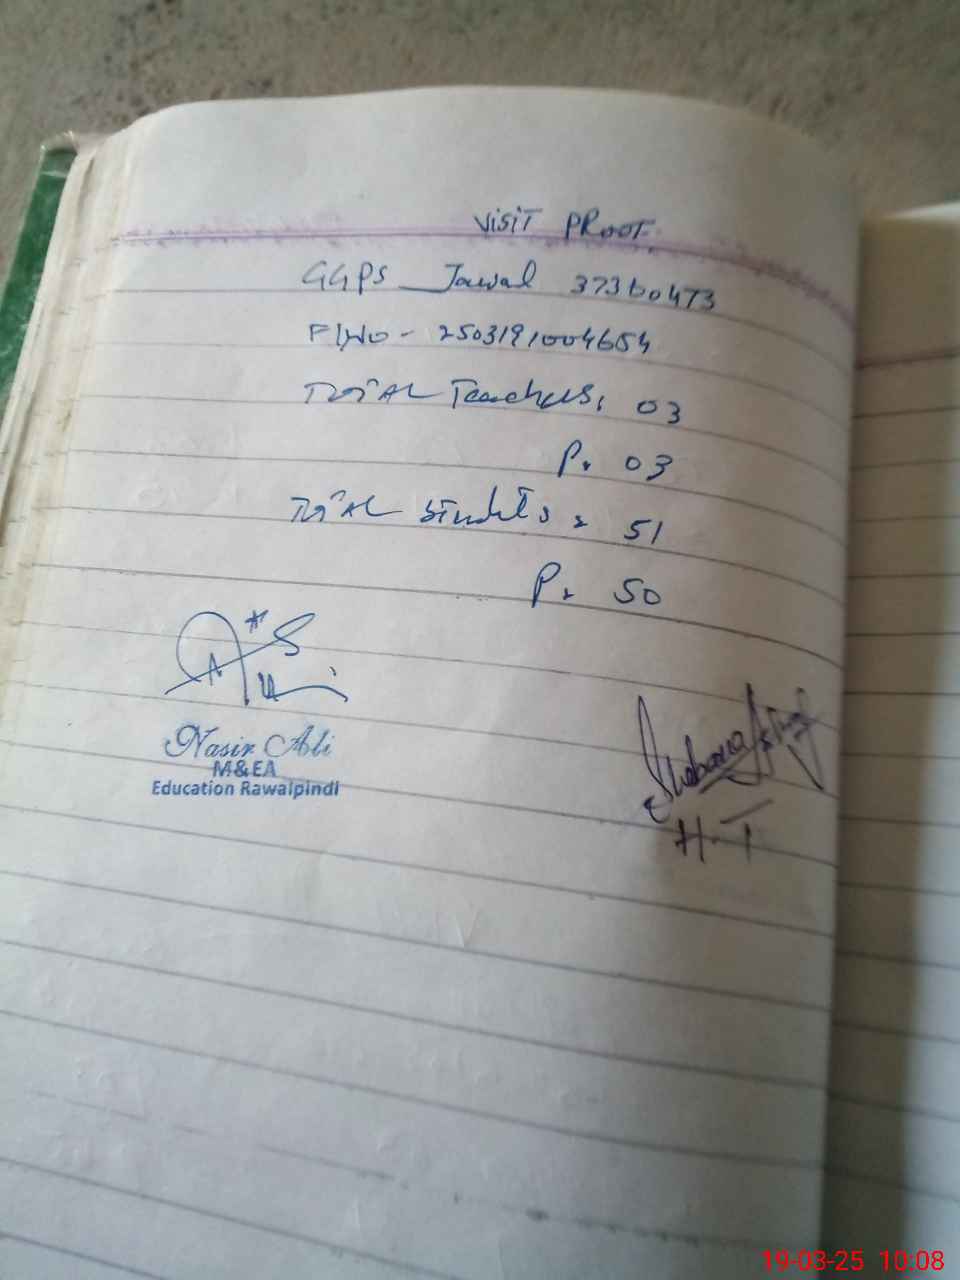 VISIT PROOF.
GGPS Jawal 37360473
F/No - 2503191004654
TOTAL Teachers, 03
P. 03
TOTAL Students 51
P. 50
Nasir Ali
M&EA
Education Rawalpindi
Shabana
H.T
19-03-25 10:08